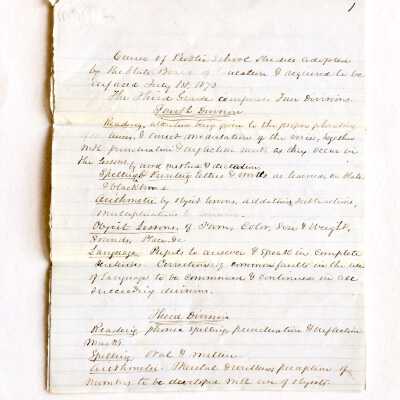 1
Course of Public School Studies adopted
by the State Board of Education & required to be
enforced July 1st, 1873.
The Third Grade comprises Four Divisions.
Fourth Division
Reading, attention being given to the proper phrasing
& correct modulation of the voice, together
with punctuation & inflection marks as they occur in
the lessons, by word method & dictation
Spelling & Printing letters & words as learned on slate
& blackboard
Arithmetic by object lessons, addition, subtraction,
multiplication &
Object Lessons, of Form, Color, Size & Weight,
Sounds, Place &c
Language Pupils to answer & speak in complete
sentences. Correction of common faults in the use
of language to be commenced & continued in all
succeeding divisions.
Third Division
Reading phonic spelling punctuation & inflection
marks.
Spelling Oral & written
Arithmetic. Mental & written, perception of
numbers to be developed with use of objects.